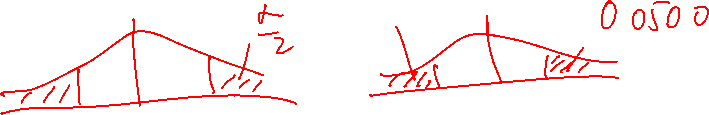 α/2
0 0500